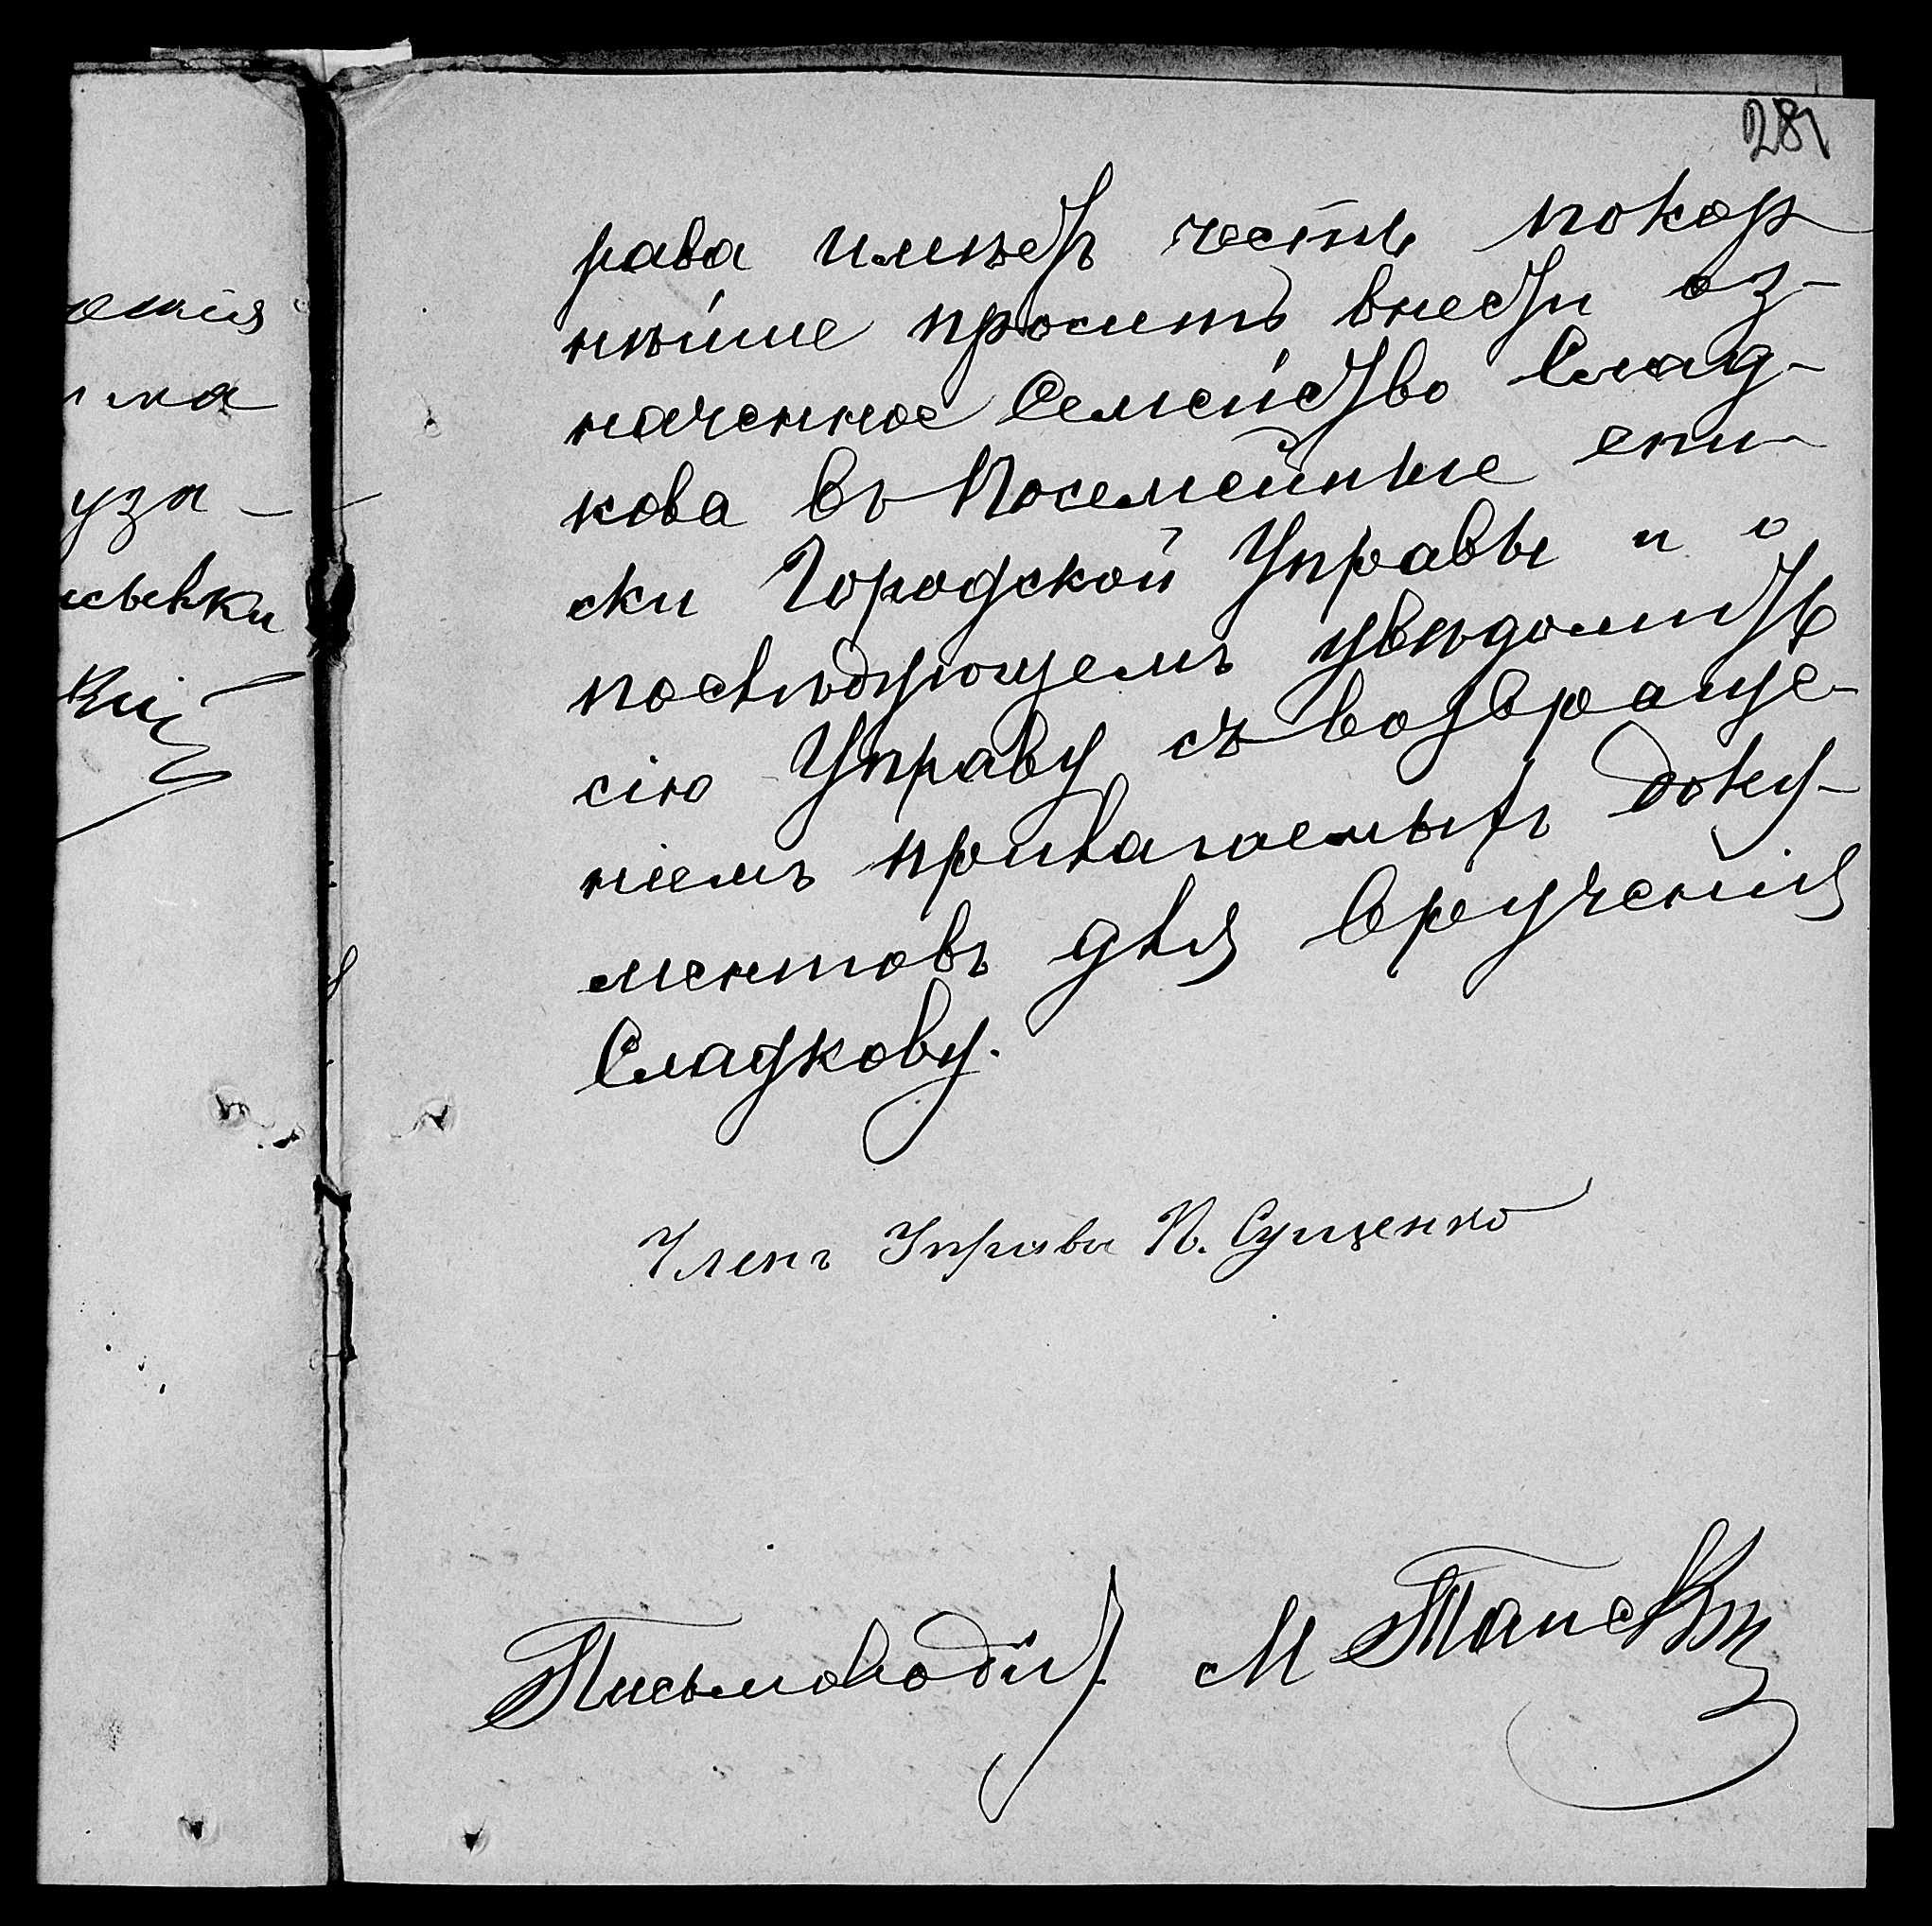 281
рава имѣетъ честь покор
нѣйше проситъ внести оз-
наченное Семейство Слад-
кова въ Посемейные спи-
ски Городской Управы и о
послѣдующемъ увѣдомить
сію Управу съ возвраще-
ніемъ прилагаемыхъ доку-
ментовъ для врученія
Сладкову.
Членъ Управы П. Сущенко
Письмоводит. М